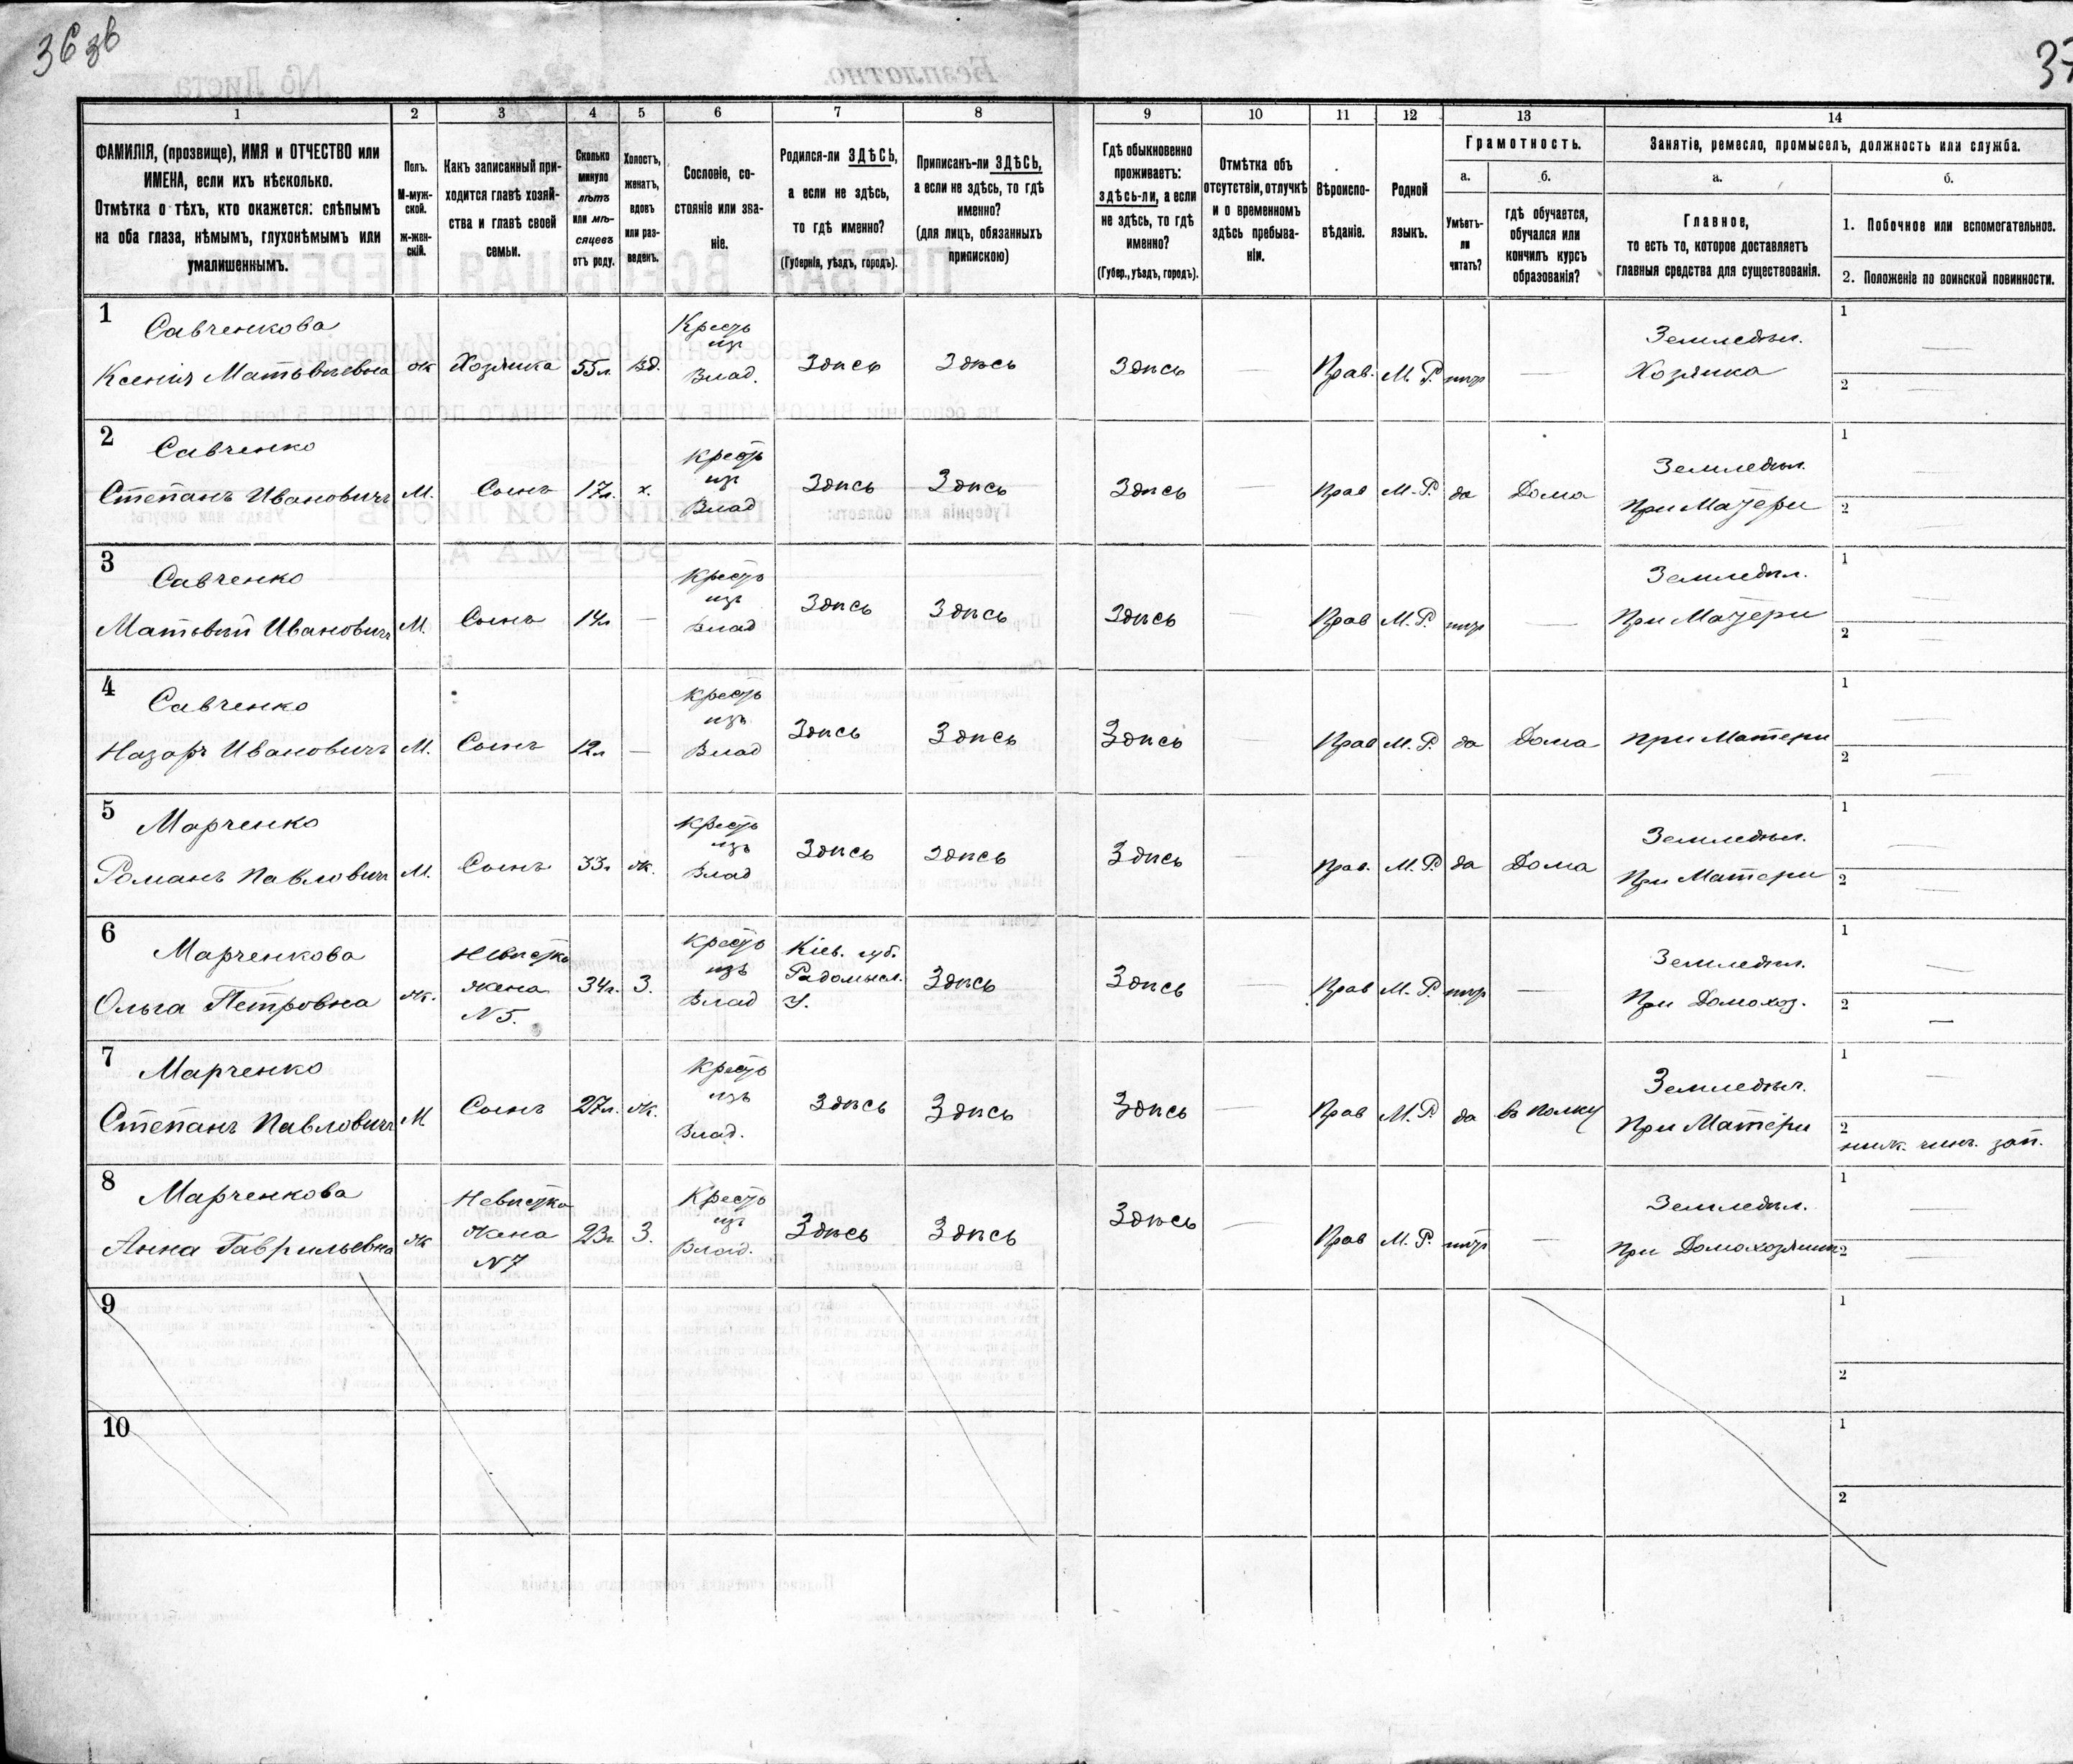 36 зв
37
1
2
3
4
5
6
7
8
9
10
11
12
13
14
ФАМИЛІЯ, (прозвище), ИМЯ и ОТЧЕСТВО или
ИМЕНА, если ихъ нѣсколько.
Отмѣтка о тѣхъ, кто окажется: слѣпымъ
на оба глаза, нѣмымъ, глухонѣмымъ или
умалишеннымъ.
Полъ.
М-муж-
ской.
ж-жен-
скій.
Какъ записанный при-
ходится главѣ хозяй-
ства и главѣ своей
семьи.
Сколько
минуло
лѣтъ
или мѣ-
сяцевъ
отъ роду.
Холостъ,
женатъ,
вдовъ
или раз-
веденъ.
Сословіе, со-
стояніе или зва-
ніе.
Родился-ли ЗДѢСЬ,
а если не здѣсь,
то гдѣ именно?
(Губернія, уѣздъ, городъ).
Приписанъ-ли ЗДѢСЬ,
а если не здѣсь, то гдѣ
именно?
(для лицъ, обязанныхъ
припискою)
Гдѣ обыкновенно
проживаетъ:
здѣсь-ли, а если
не здѣсь, то гдѣ
именно?
(Губер., уѣздъ, городъ).
Отмѣтка объ
отсутствіи, отлучкѣ
и о временномъ
здѣсь пребыва-
ніи.
Вѣроиспо-
вѣданіе.
Родной
языкъ.
Грамотность.
а.
Умѣетъ-
ли
читать?
б.
гдѣ обучается,
обучался или
кончилъ курсъ
образованія?
Занятіе, ремесло, промыселъ, должность или служба.
а.
Главное,
то есть то, которое доставляетъ
главныя средства для существованія.
б.
1. Побочное или вспомогательное.
2. Положеніе по воинской повинности.
1
Савченкова
Ксенія Матвѣевна
ж
Хозяйка
55 л.
вд.
Крестъ
изъ
Влад.
Здѣсь
Здѣсь
Здѣсь
—
Прав.
М. Р.
нѣтъ
—
Земледѣл.
Хозяйка
1 —
2 —
2
Савченко
Степанъ Ивановичъ
М.
Сынъ
17 л.
х.
Крестъ
изъ
Влад
Здѣсь
Здѣсь
Здѣсь
—
Прав
М. Р.
да
Дома
Земледѣл.
При Матери
1 —
2 —
3
Савченко
Матвѣй Ивановичъ
М.
Сынъ
14 л
—
Крестъ
изъ
Влад
Здѣсь
Здѣсь
Здѣсь
—
Прав
М. Р.
нѣтъ
—
Земледѣл.
При Матери
1 —
2 —
4
Савченко
Назаръ Ивановичъ
М.
Сынъ
12 л
—
Крестъ
изъ
Влад
Здѣсь
Здѣсь
Здѣсь
—
Прав
М. Р.
да
Дома
при Матери
1 —
2 —
5
Марченко
Романъ Павлович
М.
Сынъ
33 г
ж.
Крестъ
изъ
Влад
Здѣсь
Здѣсь
Здѣсь
—
Прав.
М. Р.
да
Дома
Земледѣл.
При Матери
1 —
2 —
6
Марченкова
Ольга Петровна
ж.
Невѣстка
жена
N 5.
34 г.
З.
Крестъ
изъ
Влад
Кіев. губ.
Радомысл.
У.
Здѣсь
Здѣсь
—
Прав
М. Р.
нѣтъ
—
Земледѣл.
При Домохоз.
1 —
2 —
7
Марченко
Степанъ Павловичъ
М
Сынъ
27 л.
ж.
Крестъ
изъ
Влад.
Здѣсь
Здѣсь
Здѣсь
—
Прав
М. Р.
да
въ полку
Земледѣл.
При Матери
1 —
2
ниж. чинъ. зап.
8
Марченкова
Анна Гаврильевна
ж
Невѣстка
жена
N 7
23 г.
З.
Крестъ
изъ
Влад.
Здѣсь
Здѣсь
Здѣсь
—
Прав
М. Р.
нѣтъ
—
Земледѣл.
При Домохозяин
1 —
2 —
9
1
2
10
1
2